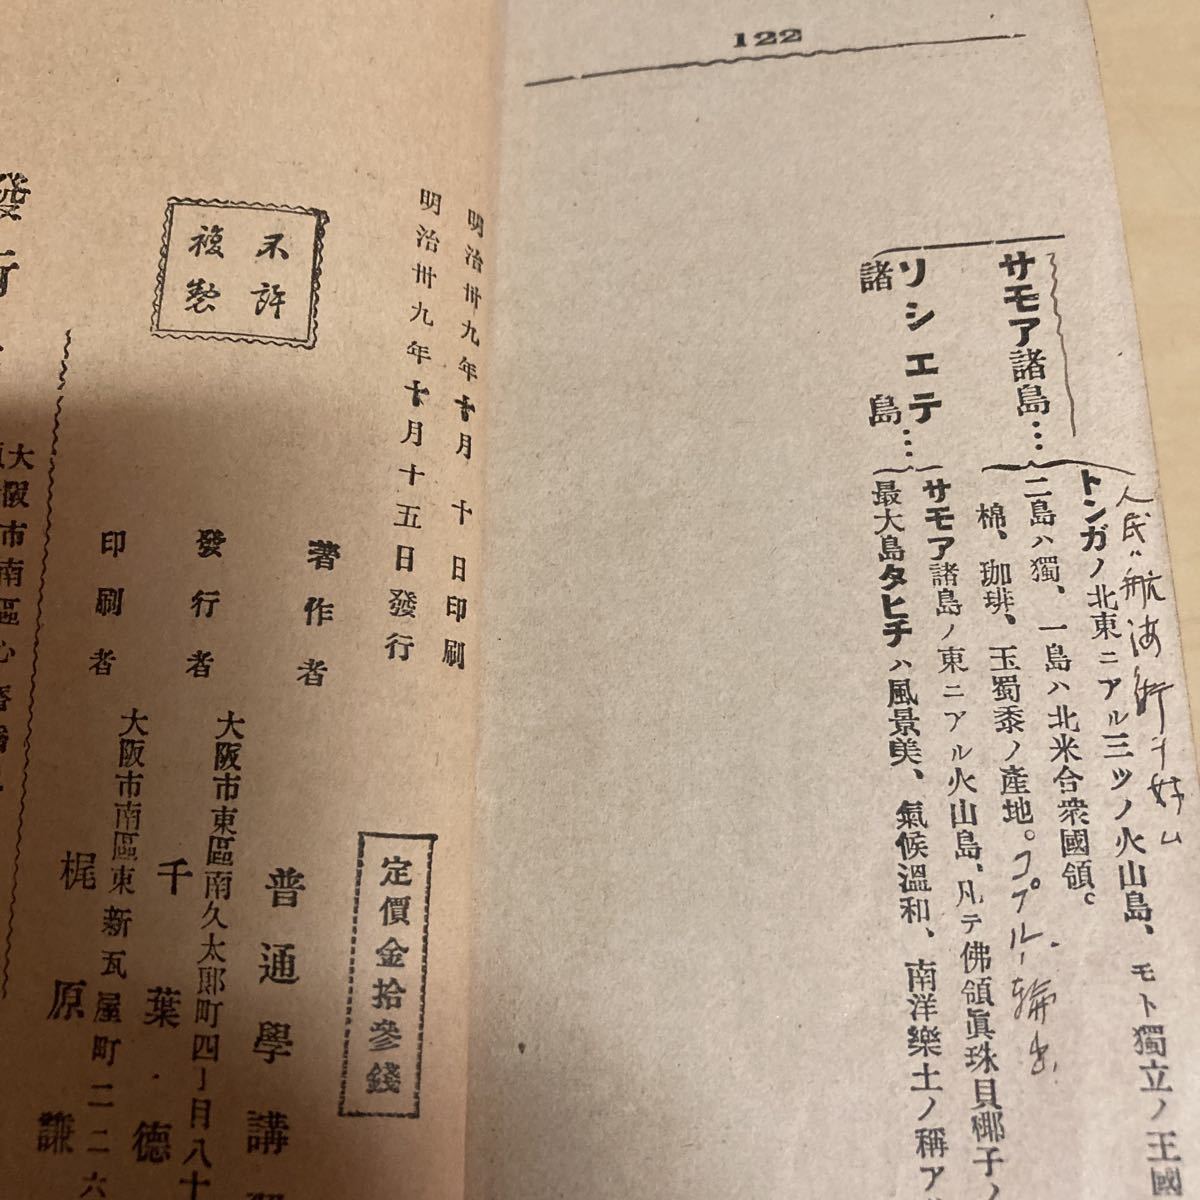 122
サモア諸島…
トンガノ北東ニアル三ツノ火山島、モト獨立ノ王國
人民ハ航海術ヲ好ム
二島ハ獨、一島ハ北米合衆國領。
棉、珈琲、玉蜀黍ノ產地。コプルー輸出
ソシエテ諸島…
サモア諸島ノ東ニアル火山島、凡テ佛領眞珠貝椰子ノ
最大島タヒチハ風景美、氣候溫和、南洋樂土ノ稱ア
明治卅九年十月十日印刷
明治卅九年十月十五日發行
不許複製
定價金拾參錢
著作者
普通學講
發行者
大阪市東區南久太郎町四丁目八十
千葉德
印刷者
大阪市南區東新瓦屋町二二六
梶原謙
發行
大阪市南區心齋橋